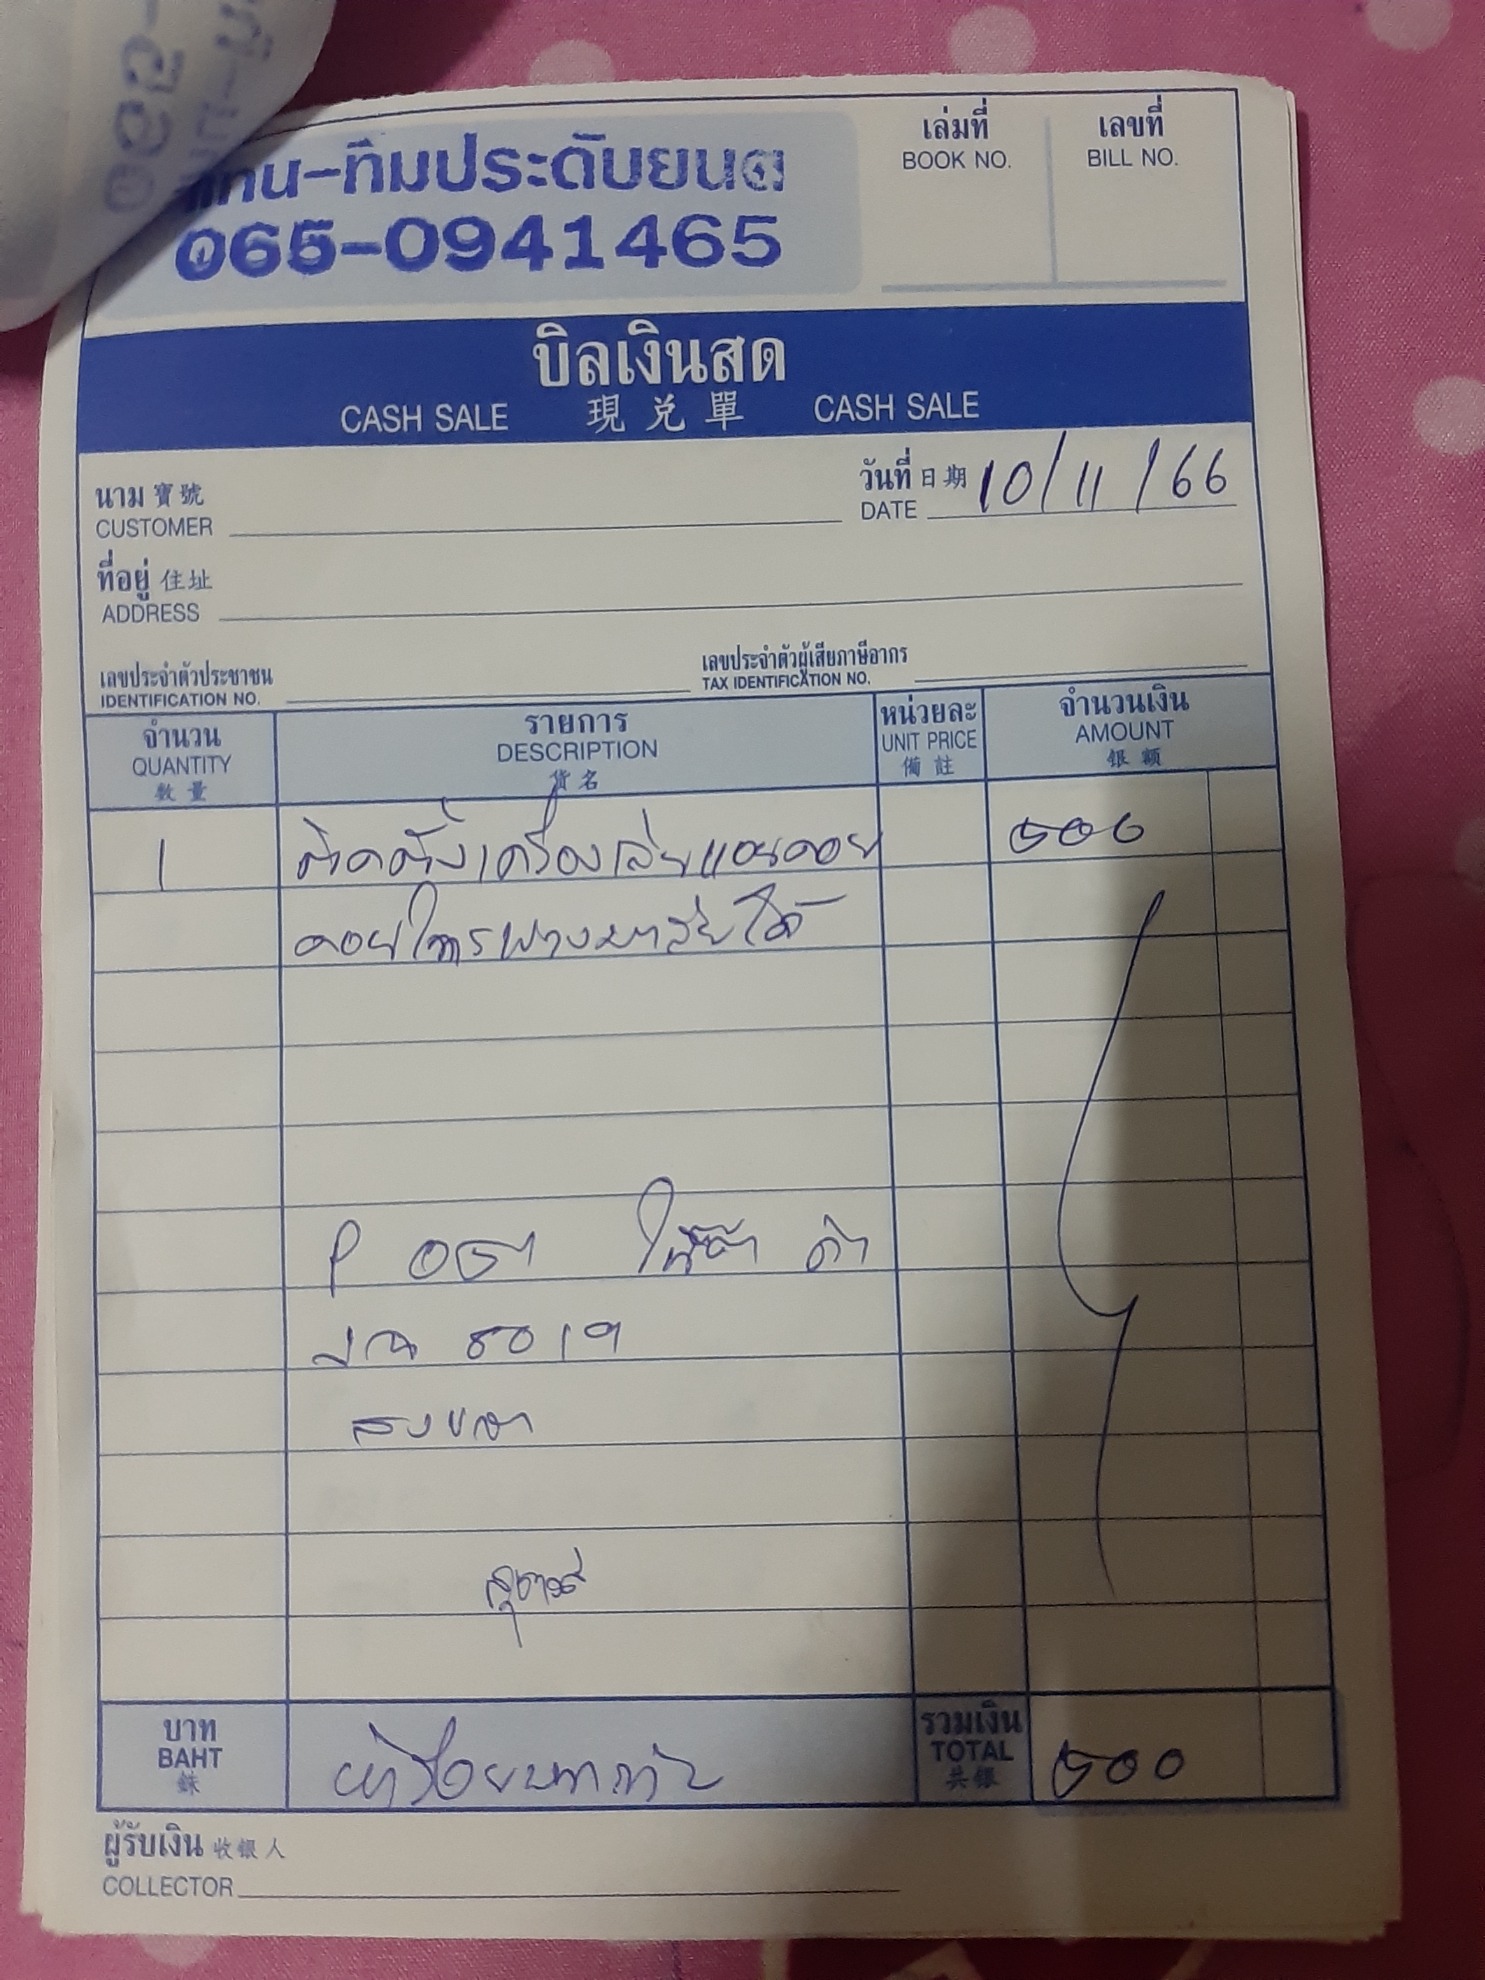 -ทีมประดับยนต์
065-0941465
เล่มที่
BOOK NO.
เลขที่
BILL NO.
บิลเงินสด
CASH SALE 現兌單 CASH SALE
นาม 寶號
CUSTOMER
วันที่ 日期 10/11/66
DATE
ที่อยู่ 住址
ADDRESS
เลขประจำตัวประชาชน
IDENTIFICATION NO.
เลขประจำตัวผู้เสียภาษีอากร
TAX IDENTIFICATION NO.
จำนวน
QUANTITY
數量
รายการ
DESCRIPTION
貨名
หน่วยละ
UNIT PRICE
備註
จำนวนเงิน
AMOUNT
銀額
1 ติดตั้งเครื่องเสีย 500
P
8019
สงขลา
บาท
BAHT
銖
ห้าร้อยบาทถ้วน
รวมเงิน
TOTAL
共銀
500
ผู้รับเงิน 收銀人
COLLECTOR